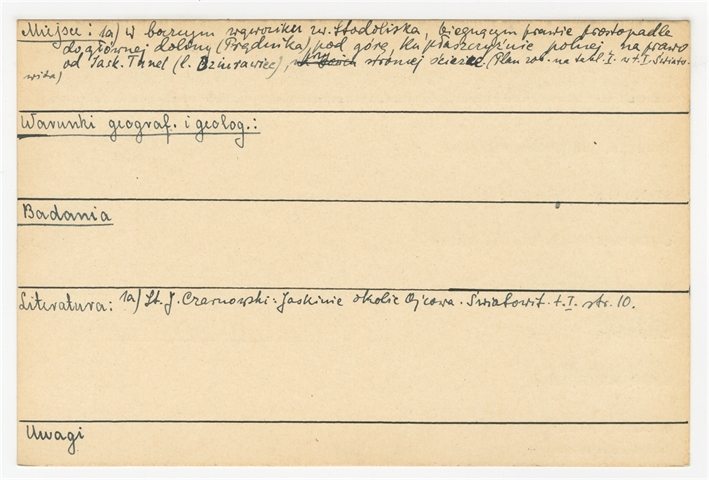 Miejsce: 1a) w bocznym wąwoziku zw. Stodoliska, biegnącym prawie prostopadle
do głównej doliny (Prądnika) pod górę, ku płaszczyźnie polnej, na prawo
od Jask. Tunel (l. Dziurawiec), przy stromej ścieżce (Plan zob. na tabl. I. w t. I Świato-
wita)
Warunki geograf. i geolog.:
Badania
Literatura: 1a) St. J. Czarnowski: Jaskinie okolic Ojcowa. Światowit. t. I. str. 10.
Uwagi